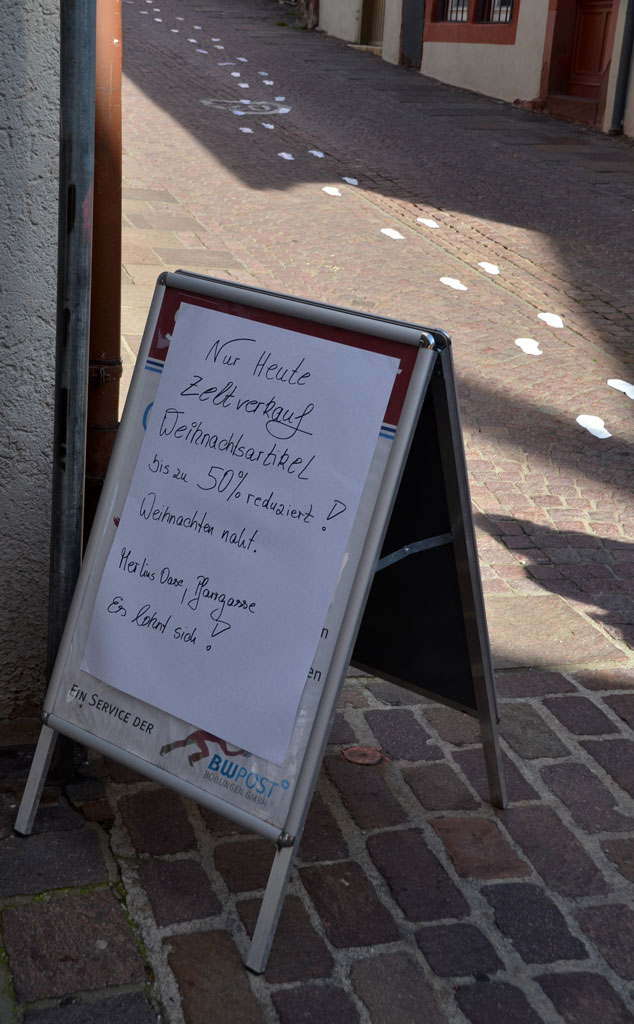 Nur Heute
Zeltverkauf
Weihnachtsartikel
bis zu 50% reduziert!
Weihnachten naht.
Merlins Oase, Pfarrgasse
Es lohnt sich!
n
en
EIN SERVICE DER
BWPOST
BÖBLINGEN GMBH